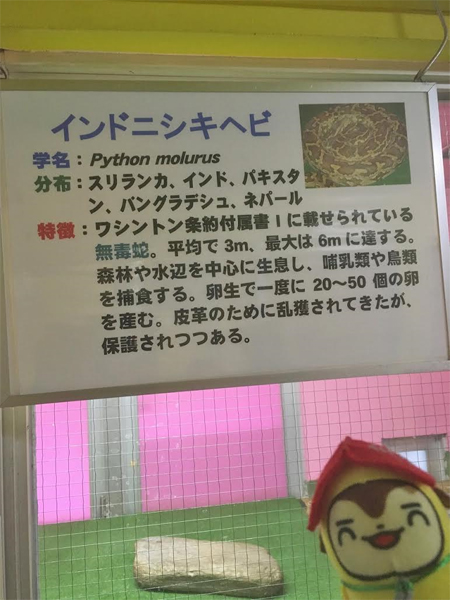 インドニシキヘビ
学名：Python molurus
分布：スリランカ、インド、パキスタ
ン、バングラデシュ、ネパール
特徴：ワシントン条約付属書Ⅰに載せられている
無毒蛇。平均で3m、最大は6mに達する。
森林や水辺を中心に生息し、哺乳類や鳥類
を捕食する。卵生で一度に20～50個の卵
を産む。皮革のために乱獲されてきたが、
保護されつつある。